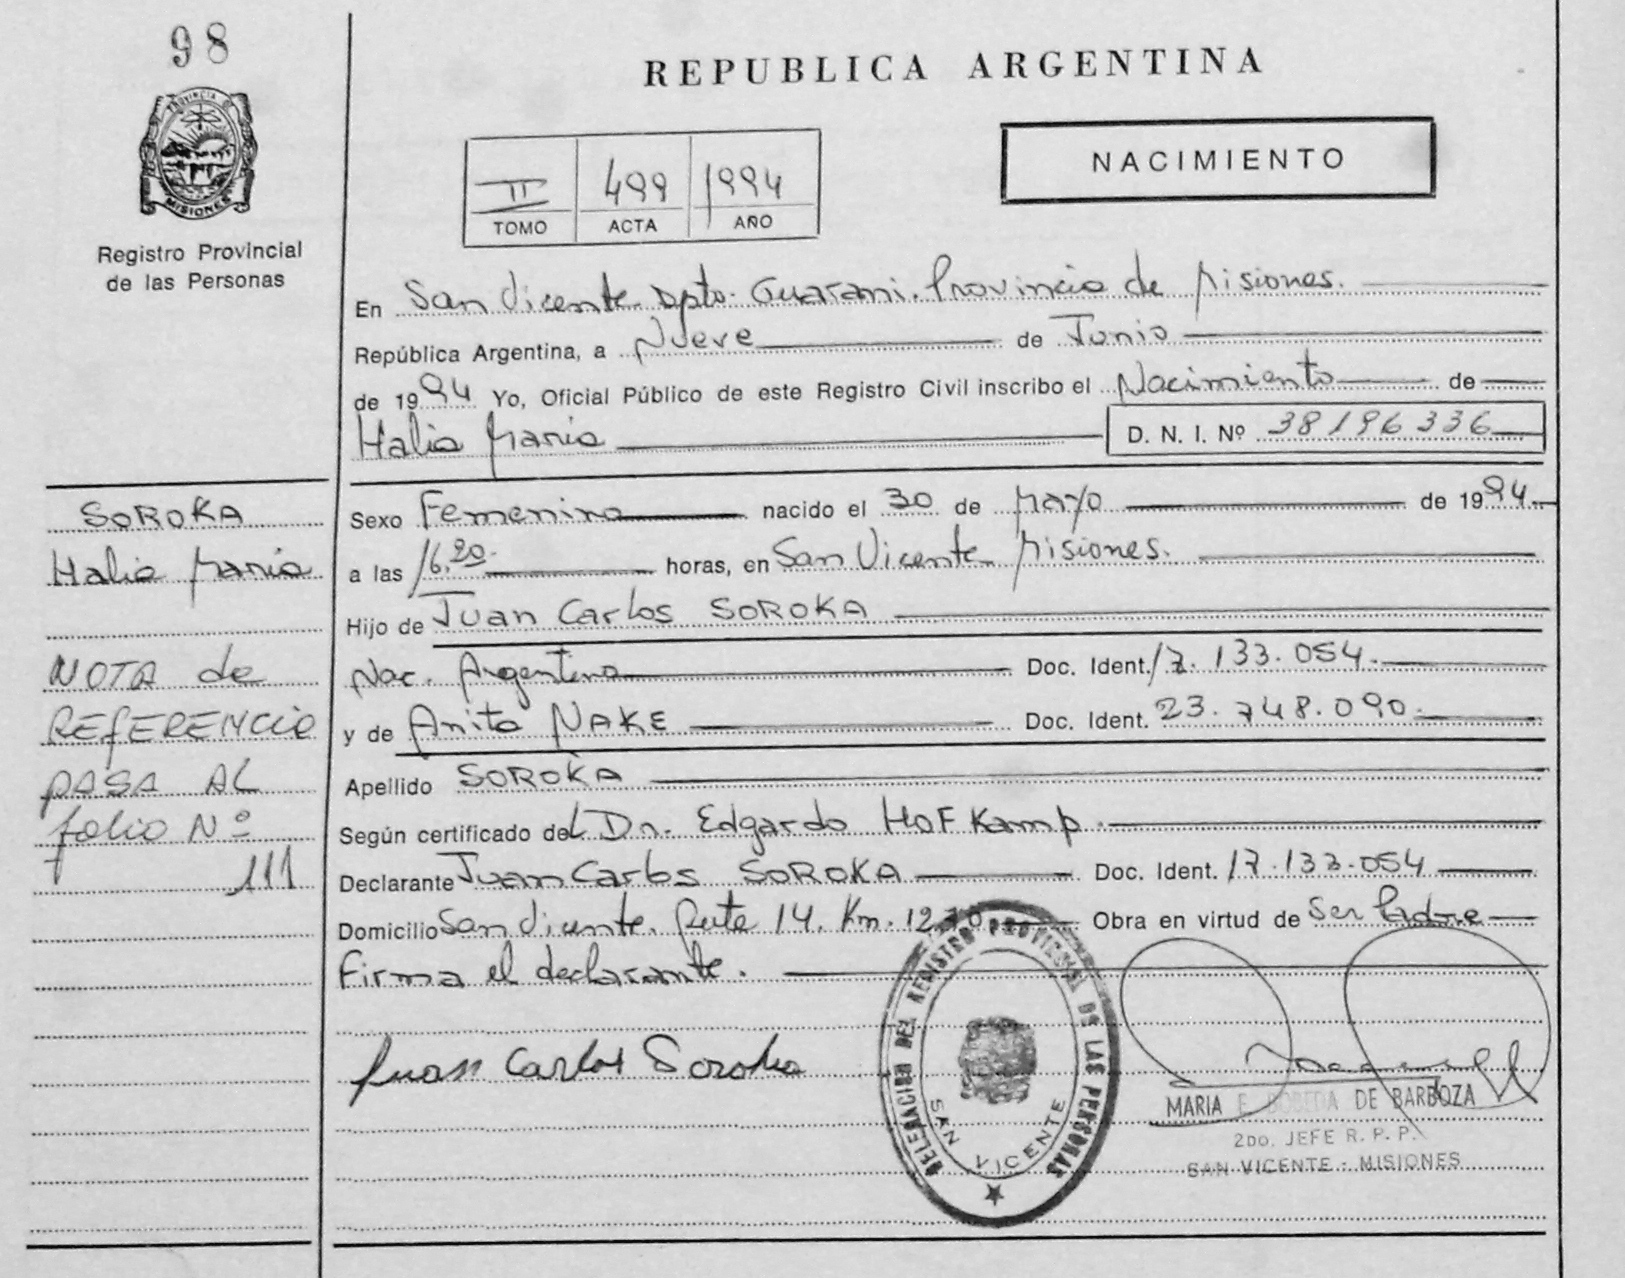 98
PROVINCIA DE
MISIONES
Registro Provincial
de las Personas
REPUBLICA ARGENTINA
NACIMIENTO
II 499 1994
TOMO ACTA AÑO
En San Vicente Dpto. Guarani. Provincia de Misiones.
República Argentina, a Nueve de Junio
de 1994 Yo, Oficial Público de este Registro Civil inscribo el Nacimiento de
Halia Maria D. N. I. Nº 38196336
SOROKA
Halia Maria
NOTA de
REFERENCIA
PASA AL
folio Nº
111
Sexo Femenino nacido el 30 de Mayo de 1994
a las 16.20 horas, en San Vicente Misiones.
Hijo de Juan Carlos SOROKA
Nac. Argentina Doc. Ident. 17.133.054
y de Anita NAKE Doc. Ident. 23.748.090
Apellido SOROKA
Según certificado del Dr. Edgardo HOFKamp.
Declarante Juan Carlos SOROKA Doc. Ident. 17.133.054
Domicilio San Vicente. Ruta 14. Km. 1270 Obra en virtud de Ser Padre
Firma el declarante.
Juan Carlos Soroka
DELEGACION DEL REGISTRO PROVINCIAL DE LAS PERSONAS
SAN VICENTE
MARIA E. DE BARBOZA
2DO. JEFE R. P. P.
SAN VICENTE - MISIONES